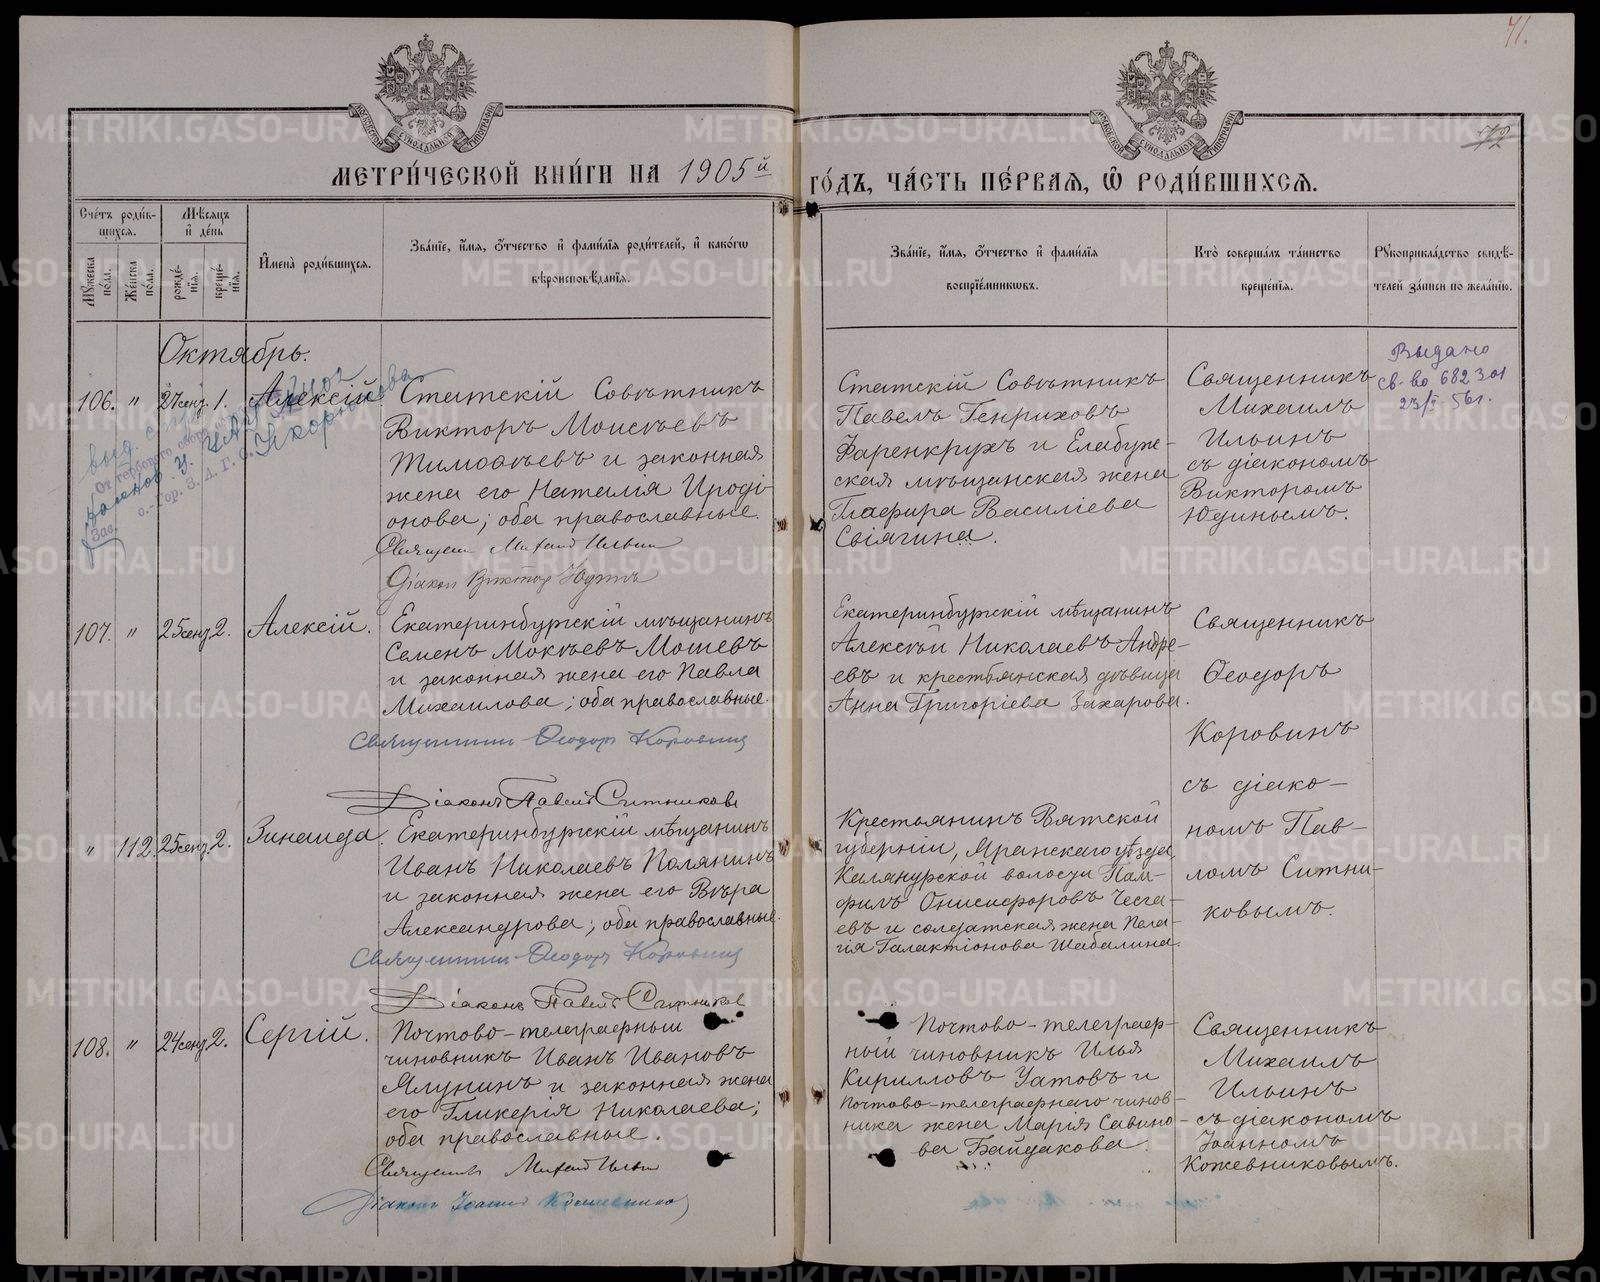 41.
72
МЕТРИ́ЧЕСКОЙ КНИ́ГИ НА 1905й
ГО́ДЪ, ЧА́СТЬ ПЕ́РВАѦ, Ѽ РОДИ́ВШИХСѦ.
Сче́тъ роди́в-
шихсѧ.
Мꙋжеска по́ла.
Же́нска по́ла.
Мѣ́сѧцъ и де́нь
рожде́-
нїѧ.
креще́-
нїѧ.
И҆мена̀ роди́вшихсѧ.
Зва́нїе, и҆́мѧ, ѻ҆́тчество и҆ фами́лїѧ роди́телей, и҆ како́гѡ
вѣроисповѣ́данїѧ.
Зва́нїе, и҆́мѧ, ѻ҆́тчество и҆ фами́лїѧ
воспрїе́мникѡвъ.
Кто̀ соверша́лъ та́инство
креще́нїѧ.
Рꙋкоприкла́дство свидѣ́-
телей за́писи по жела́нїю.
Октябрь.
106. " 27 сент. 1. Алексій.
Статскій Совѣтникъ
Викторъ Моисѣевъ
Тимоѳѣевъ и законная
жена его Наталія Иродi-
онова; оба православные.
Священ. Михаил Ильин
Діакон Виктор Юдинъ
Статскій Совѣтникъ
Павелъ Генриховъ
Фаренкрухъ и Елабуж-
ская мѣщанская жена
Глафира Василіева
Свіягина.
Священникъ
Михаилъ
Ильинъ
съ діакономъ
Викторомъ
Юдинымъ.
Выдано
св-во 682301
23/I 56г.
107. " 25 сент. 2. Алексій.
Екатеринбургскій мѣщанинъ
Семенъ Мокѣевъ Мошевъ
и законная жена его Павла
Михаилова; оба православные.
Священник Ѳеодоръ Коровинъ
Діаконъ Павелъ Ситниковъ
Екатеринбургскій мѣщанинъ
Алексѣй Николаевъ Андре-
евъ и крестьянская дѣвица
Анна Григоріева Захарова.
Священникъ
Ѳеодоръ
Коровинъ
съ діако-
номъ Пав-
ломъ Ситни-
ковымъ.
" 112. 25 сент. 2. Зинаида.
Екатеринбургскій мѣщанинъ
Иванъ Николаевъ Полянинъ
и законная жена его Вѣра
Александрова; оба православные.
Священник Ѳеодоръ Коровинъ
Діаконъ Павелъ Ситников
Крестьянинъ Вятской
губерніи, Яранскаго уѣзда,
волости Пам-
филъ Онисифоровъ
евъ и солдатская жена Пела-
гія Галактіонова Шабалина.
108. " 24 сент. 2. Сергій.
Почтово-телеграфный
чиновникъ Иванъ Ивановъ
Ялунинъ и законная жена
его Гликерія Николаева;
оба православные.
Священникъ Михаил Ильин
Діаконъ Іоаннъ Кожевников
Почтово-телеграф-
ный чиновникъ Илья
Кирилловъ Уатовъ и
почтово-телеграфнаго чинов-
ника жена Марія Савино-
ва Байдакова.
Священникъ
Михаилъ
Ильинъ
съ діакономъ
Іоанномъ
Кожевниковымъ.
METRIKI.GASO-URAL.RU